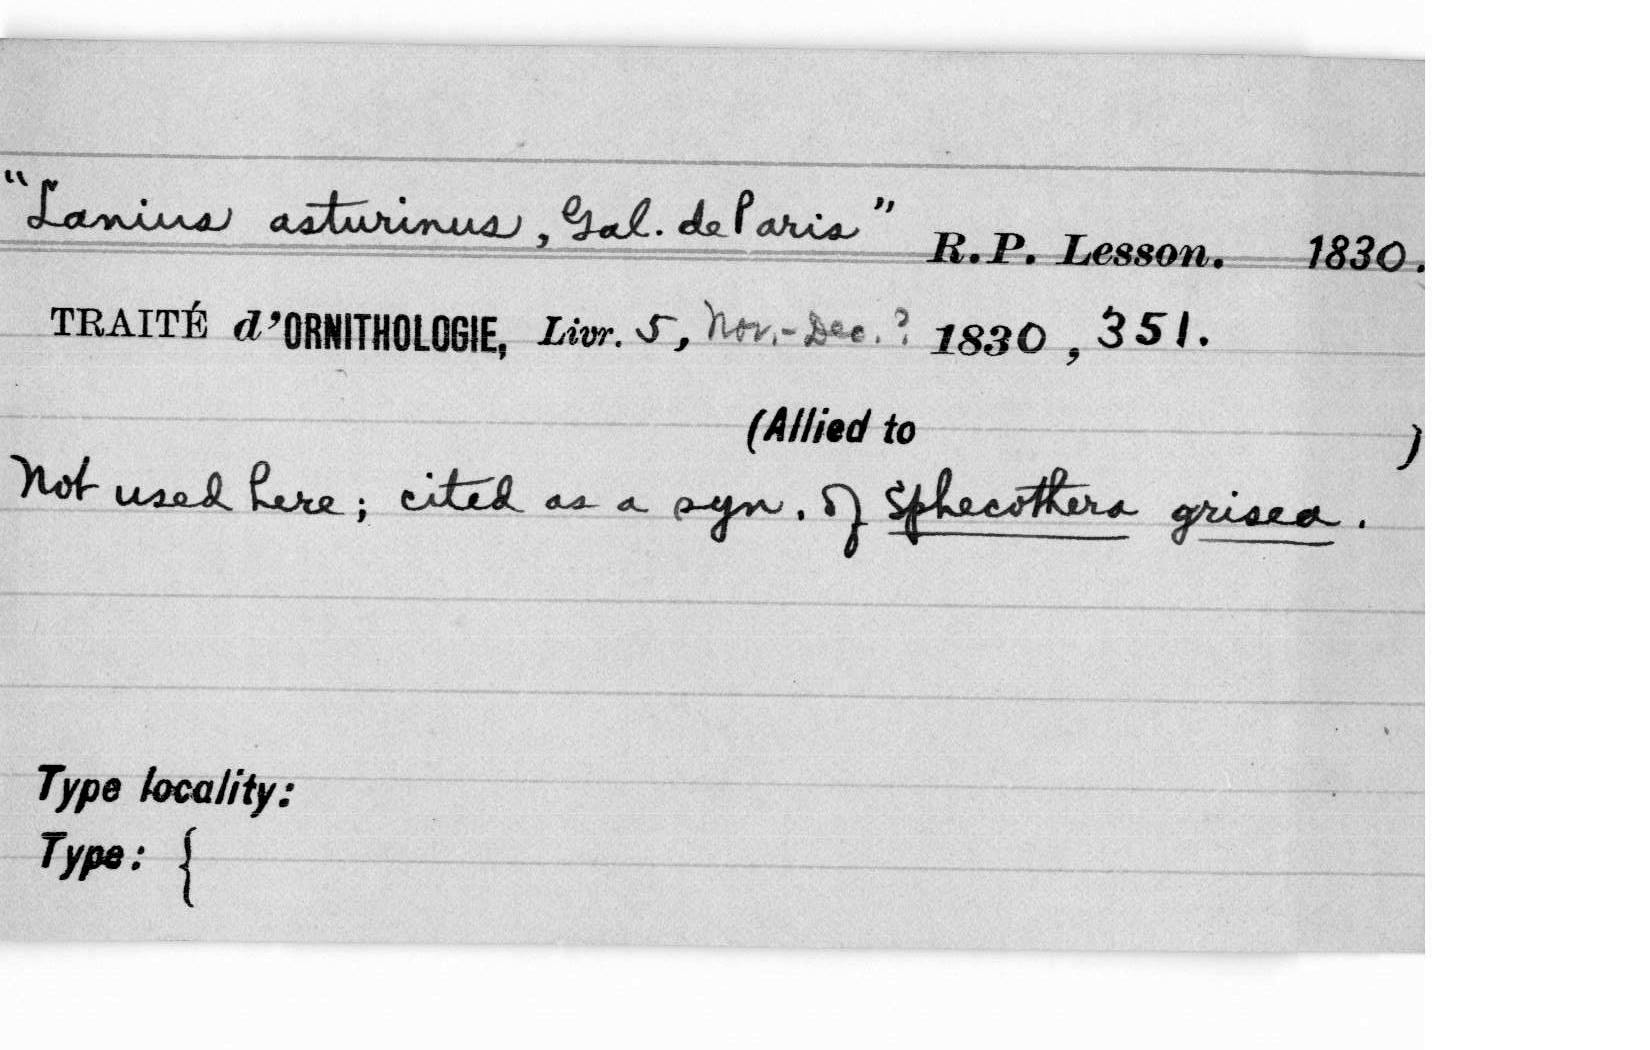 "Lanius asturinus, Gal. de Paris" R. P. Lesson. 1830.
TRAITÉ d'ORNITHOLOGIE, Livr. 5, Nov.-Dec.? 1830, 351.
(Allied to )
Not used here; cited as a syn. of Sphecothera grisea.
Type locality:
Type: {